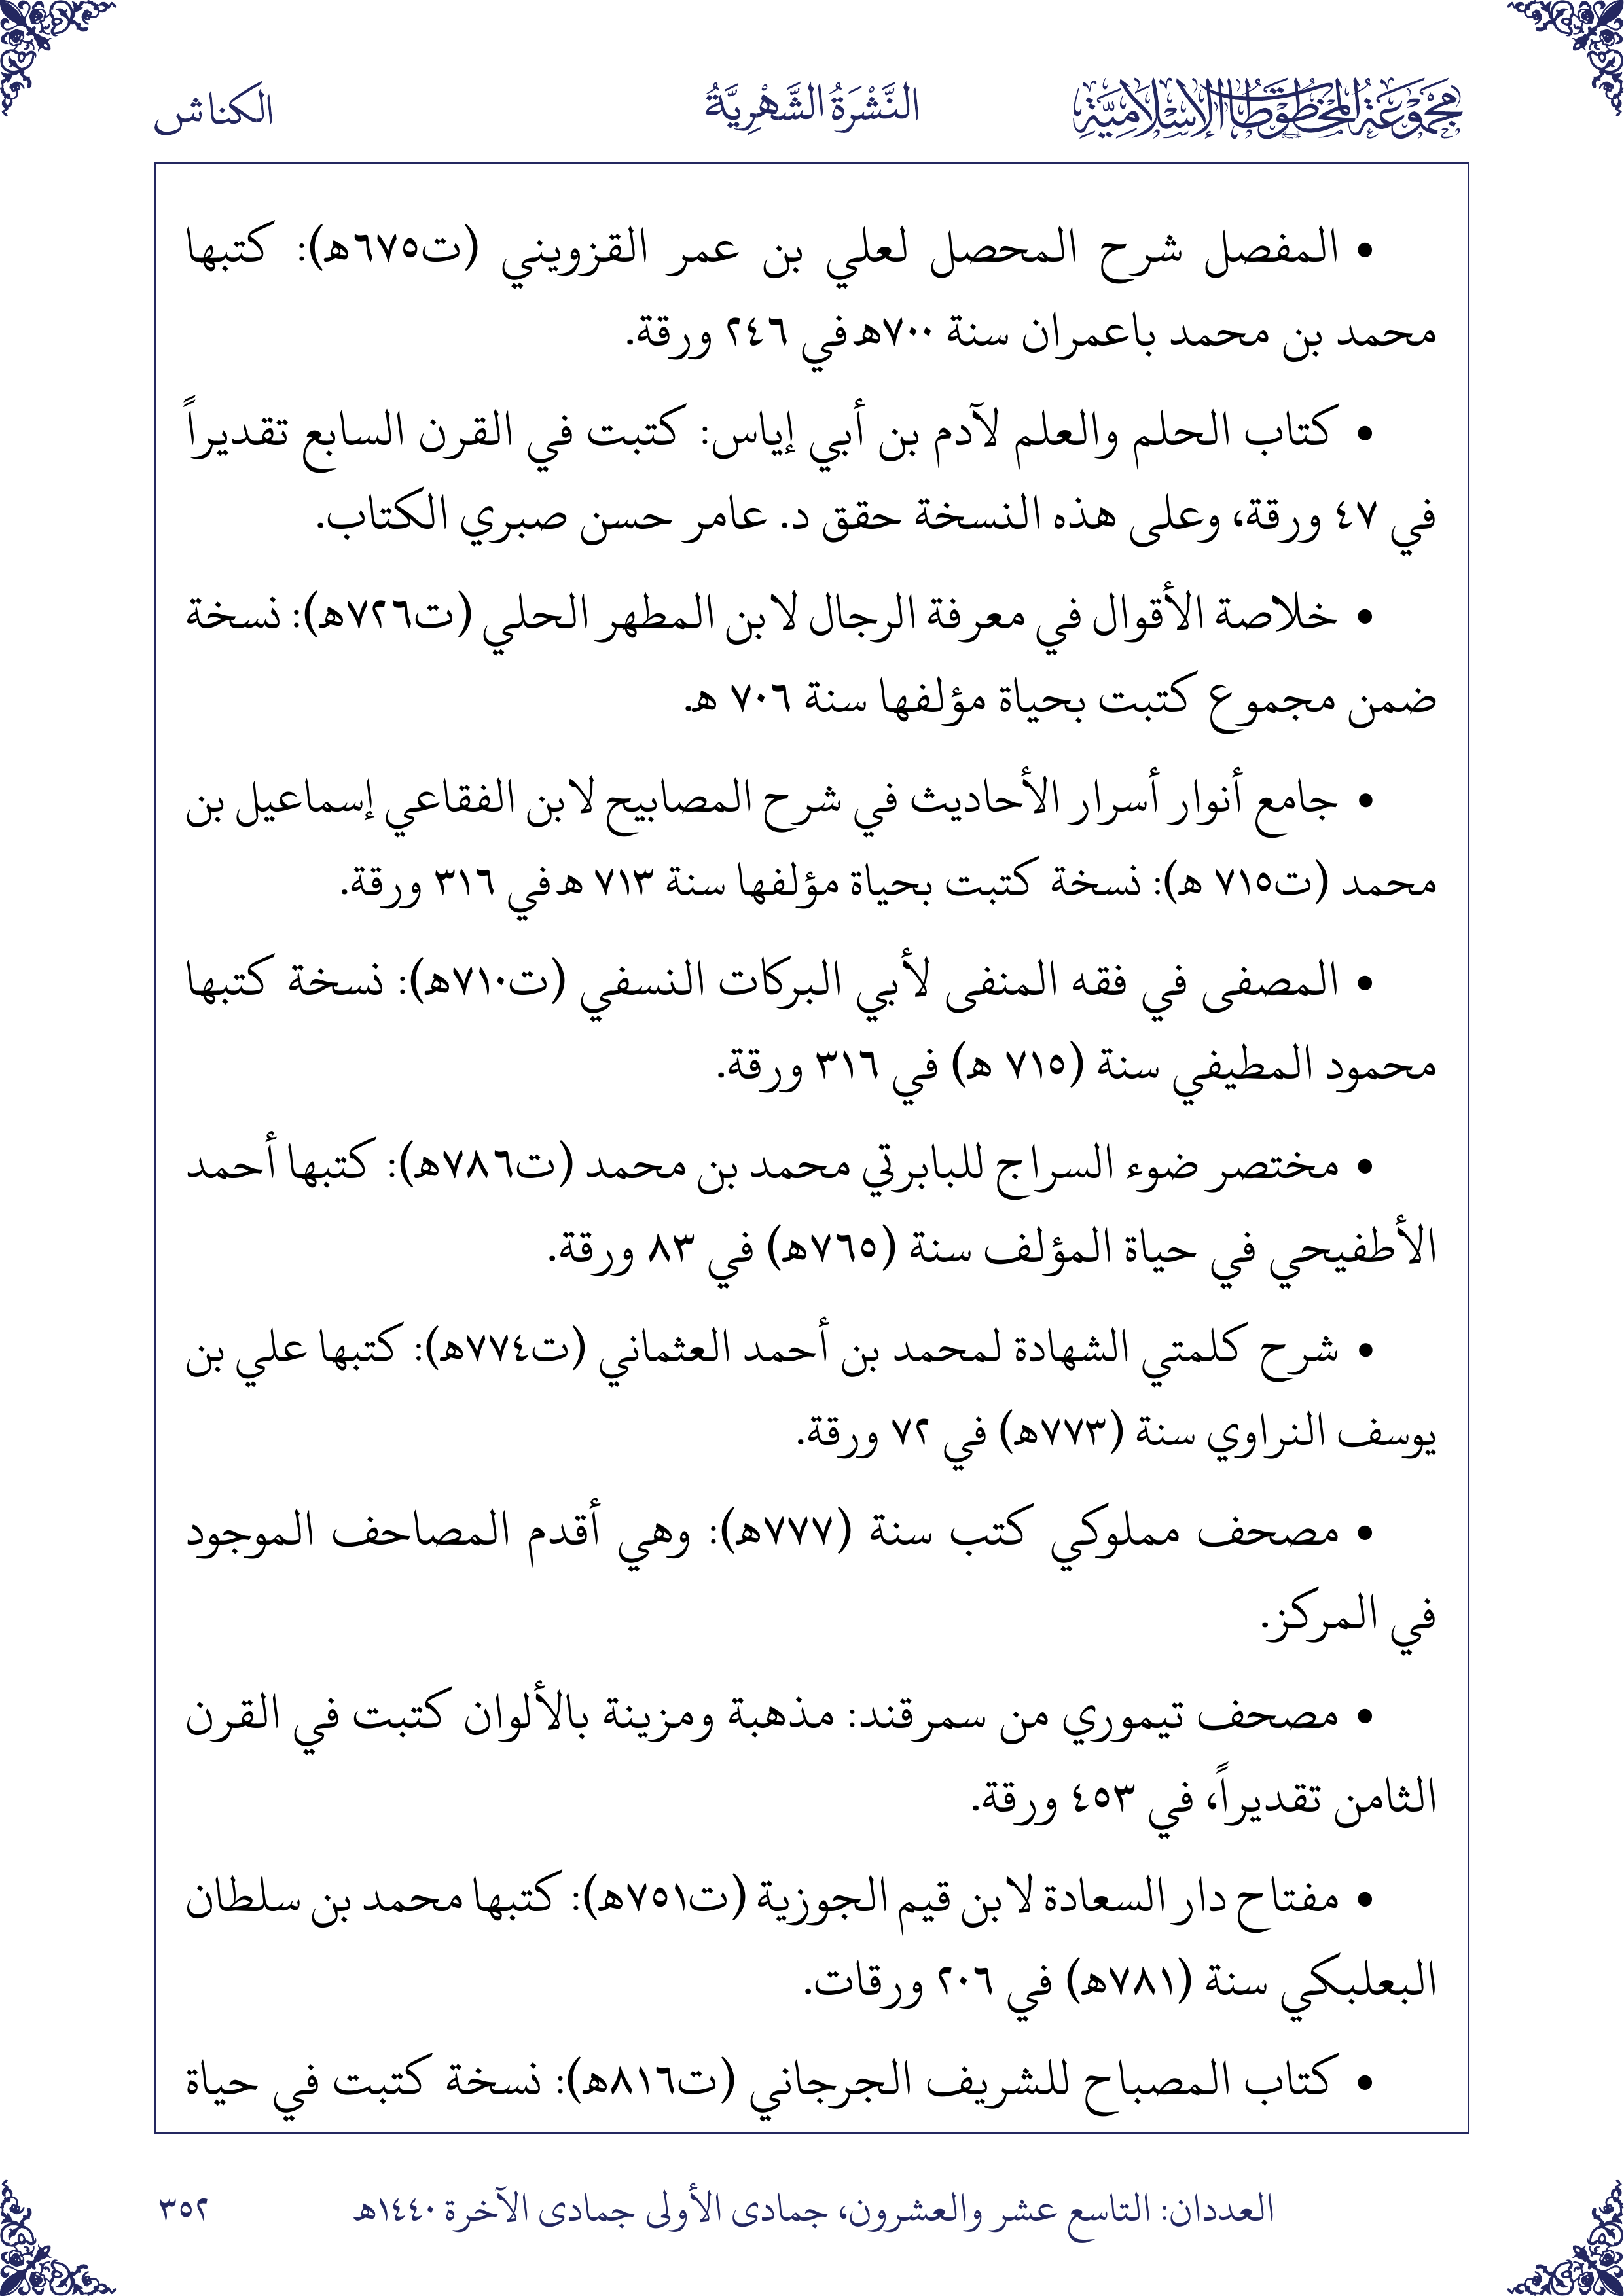 مَجْمُوعَةُ المَخْطُوطَاتُ الإِسْلَامِيَّةِ
النَّشْرَةُ الشَّهْرِيَّةُ
الكناش
• المفصل شرح المحصل لعلي بن عمر القزويني (ت٦٧٥هـ): كتبها
محمد بن محمد باعمران سنة ٧٠٠هـ في ٢٤٦ ورقة.
• كتاب الحلم والعلم لآدم بن أبي إياس: كتبت في القرن السابع تقديراً
في ٤٧ ورقة، وعلى هذه النسخة حقق د. عامر حسن صبري الكتاب.
• خلاصة الأقوال في معرفة الرجال لابن المطهر الحلي (ت٧٢٦هـ): نسخة
ضمن مجموع كتبت بحياة مؤلفها سنة ٧٠٦ هـ.
• جامع أنوار أسرار الأحاديث في شرح المصابيح لابن الفقاعي إسماعيل بن
محمد (ت٧١٥ هـ): نسخة كتبت بحياة مؤلفها سنة ٧١٣ هـ في ٣١٦ ورقة.
• المصفى في فقه المنفى لأبي البركات النسفي (ت٧١٠هـ): نسخة كتبها
محمود المطيفي سنة (٧١٥ هـ) في ٣١٦ ورقة.
• مختصر ضوء السراج للبابرتي محمد بن محمد (ت٧٨٦هـ): كتبها أحمد
الأطفيحي في حياة المؤلف سنة (٧٦٥هـ) في ٨٣ ورقة.
• شرح كلمتي الشهادة لمحمد بن أحمد العثماني (ت٧٧٤هـ): كتبها علي بن
يوسف النراوي سنة (٧٧٣هـ) في ٧٢ ورقة.
• مصحف مملوكي كتب سنة (٧٧٧هـ): وهي أقدم المصاحف الموجود
في المركز.
• مصحف تيموري من سمرقند: مذهبة ومزينة بالألوان كتبت في القرن
الثامن تقديراً، في ٤٥٣ ورقة.
• مفتاح دار السعادة لابن قيم الجوزية (ت٧٥١هـ): كتبها محمد بن سلطان
البعلبكي سنة (٧٨١هـ) في ٢٠٦ ورقات.
• كتاب المصباح للشريف الجرجاني (ت٨١٦هـ): نسخة كتبت في حياة
العددان: التاسع عشر والعشرون، جمادى الأولى جمادى الآخرة ١٤٤٠هـ
٣٥٢